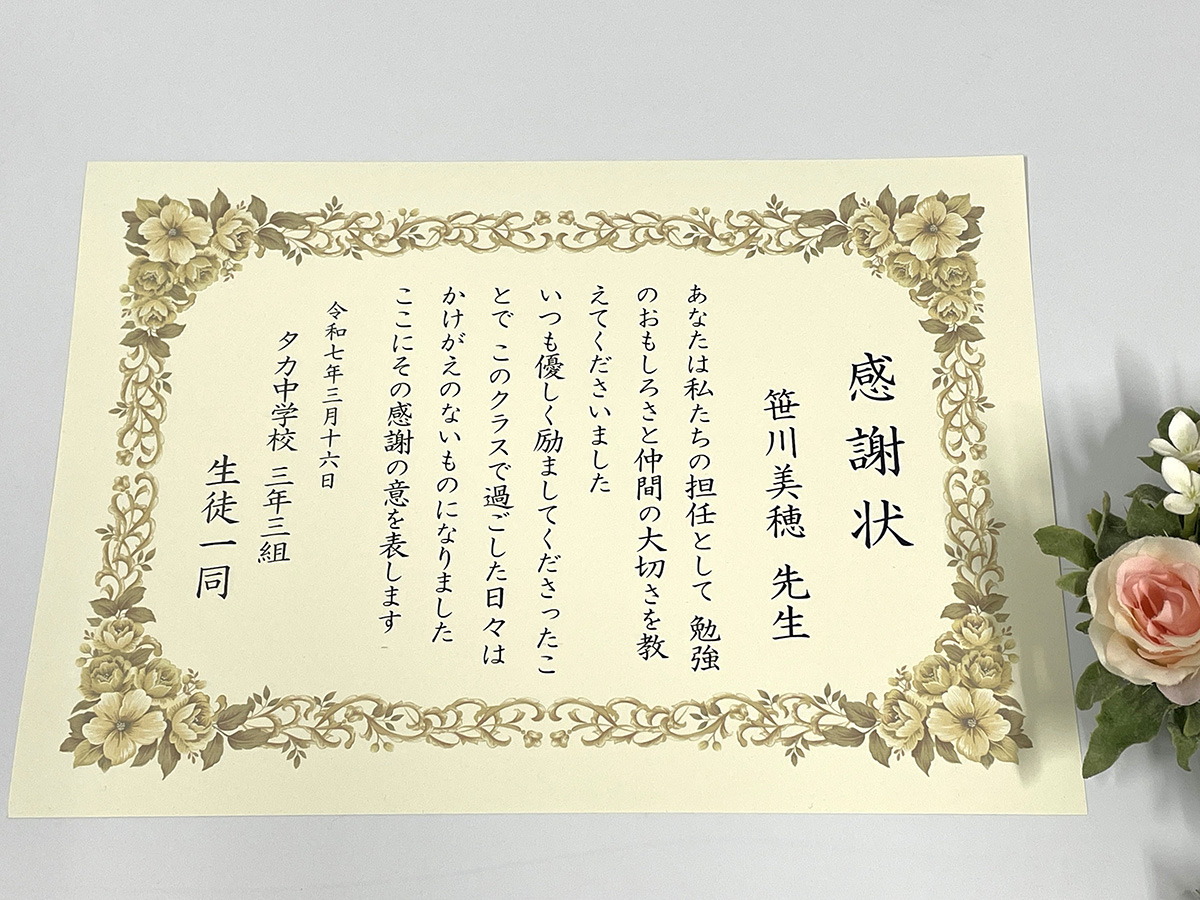 感謝状
笹川美穂 先生
あなたは私たちの担任として 勉強
のおもしろさと仲間の大切さを教
えてくださいました
いつも優しく励ましてくださったこ
とで このクラスで過ごした日々は
かけがえのないものになりました
ここにその感謝の意を表します
令和七年三月十六日
タカ中学校 三年三組
生徒一同